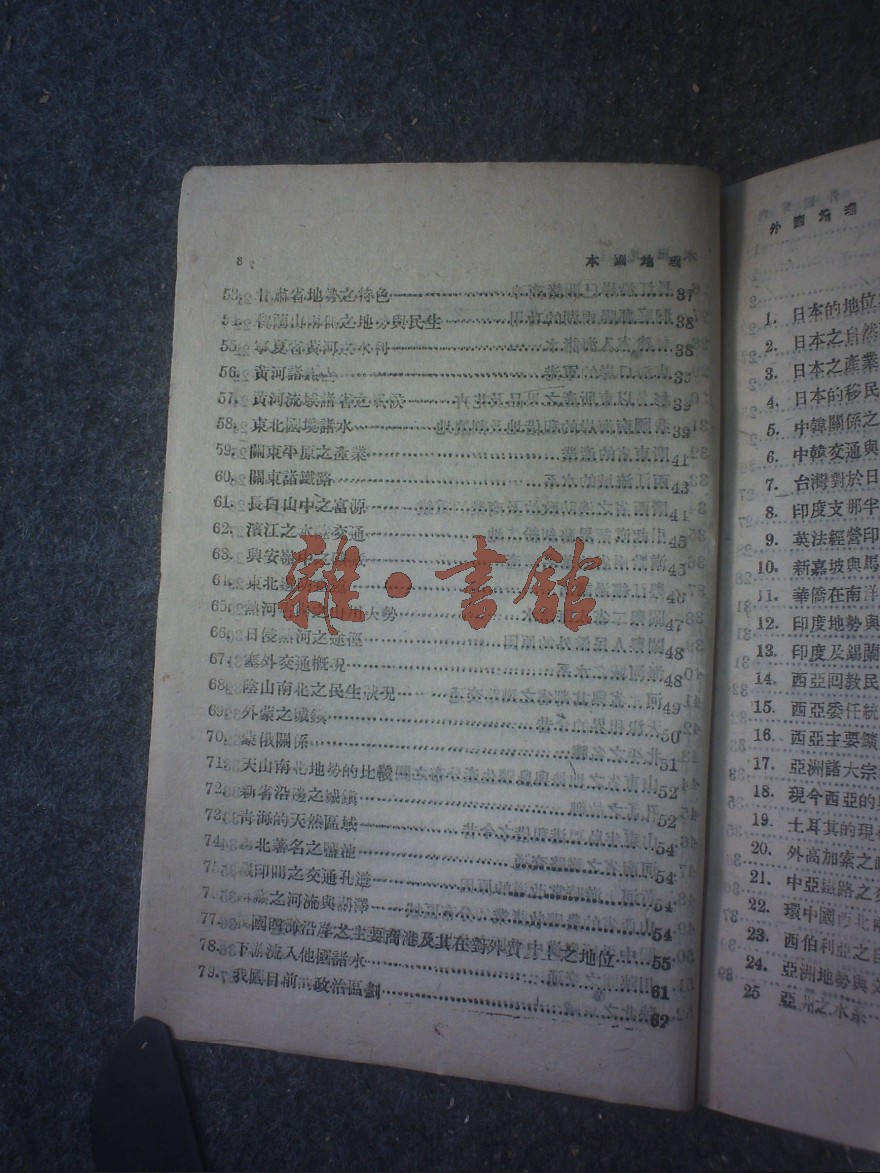 8 本國地理
53. 甘肅省地勢之特色 37
54. 賀蘭山兩側之地勢與民生 38
55. 寧夏省黃河之水利 38
56. 黃河諸
57. 黃河流域諸省之氣候 39
58. 東北國境諸水 39
59. 關東平原之產業 41
60. 關東諸鐵路 43
61. 長白山中之富源 44
62. 濱江之水陸交通 45
63. 興安嶺 45
64. 東北 46
65. 熱河 之山川大勢 47
66. 日侵熱河之途徑 48
67. 塞外交通概況 48
68. 陰山南北之民生狀況 49
69. 外蒙之城鎮 50
70. 蒙俄關係 51
71. 天山南北地勢的比較 52
72. 新省沿邊之城鎮 52
73. 青海的天然區域 54
74. 北著名之鹽池 54
75. 藏印間之交通孔道 54
76. 之河流與湖澤 54
77. 國西海沿岸之主要商港及其在對外貿 上之地位 55
78. 下游流入他國諸水 61
79. 我國目前 政治區劃 62
雜·書館
外國地理
1. 日本的地位
2. 日本之自然
3. 日本之產業
4. 日本的移民
5. 中韓關係之
6. 中韓交通與
7. 台灣對於日
8. 印度支那半
9. 英法經營印
10. 新嘉坡與馬
11. 華僑在南洋
12. 印度地勢與
13. 印度及錫蘭
14. 西亞回教民
15. 西亞委任統
16. 西亞主要鐵
17. 亞洲諸大宗
18. 現今西亞的
19. 土耳其的現
20. 外高加索之
21. 中亞鐵路之
22. 環中國西北
23. 西伯利亞之
24. 亞洲地勢與
25 亞州之水系